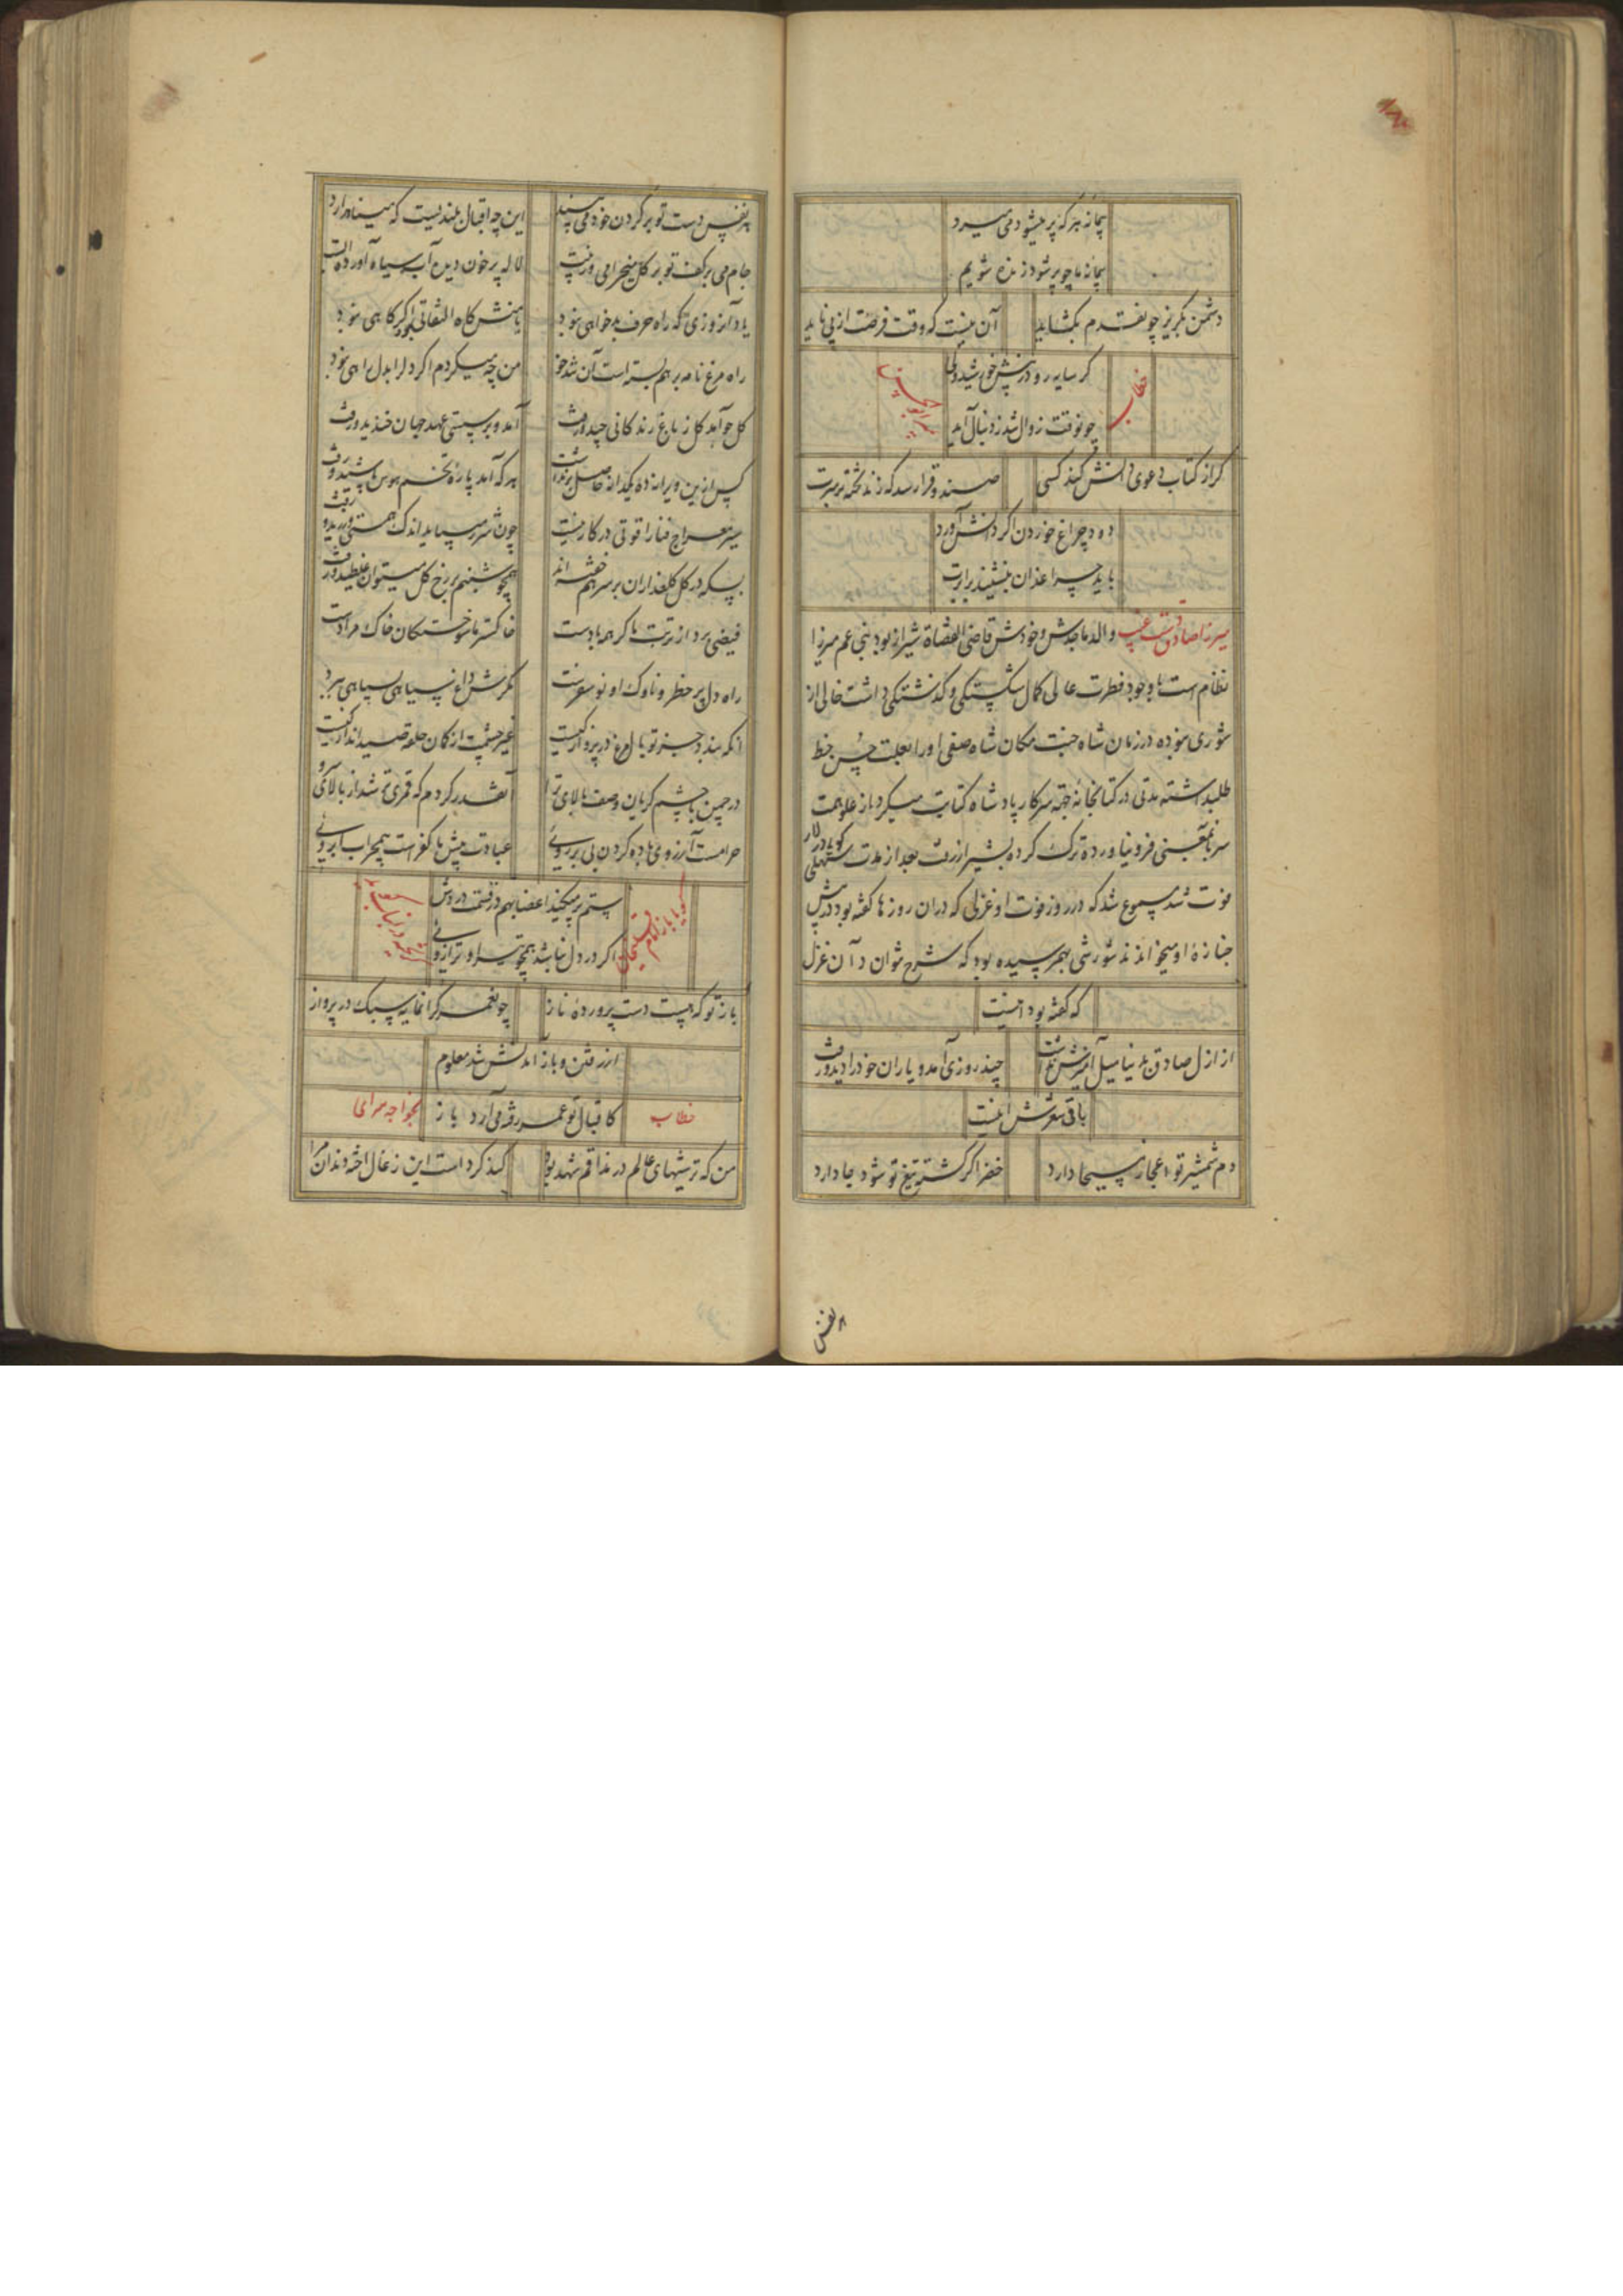 پیمانه هر که پر میشود می میرد
پیمانه ما چو پر شود زنده شویم
دشمن بگریز چونفتدم بگشاید آن نیست که وقت فرصت از پی ناید
خطاب
گر سایه رود ز پیش خورشید ولی
چونوقت زوال شد ز دنبال آید
گر از کتاب دعوی دانش کند کسی صندوق را رسد که زند تخته بر سرت
دود چراغ خوردن اگر دانش آورد
باید چراغدان بنشیند برابرت
میرزا صادق دست غیب والد ماجدش و خودش قاضی القضاة شیراز بود بنی عم میرزا
نظام است با وجود فطرت عالی کمال شکستگی و گذشتگی داشت خالی از
شوری نبوده در زمان شاه جنت مکان شاه صفی او را بعلت حسن خط
طلب داشته مدتی در کتابخانه جهة سرکار پادشاه کتابت میکرد باز علو همت
سر بآنمعنی فرو نیاورده ترک کرده بشیراز رفت بعد از مدت سهلی گویا در لار
فوت شد مسموع شد که در روز فوت او غزلی که در آن روزها گفته بود در پیش
جنازه او میخواندند شورشی بهم رسیده بود که شرح نتوان داد آن غزل
که گفته بود اینست
از ازل صادق بدنیا میل آمیزش نداشت چند روزی آمد و یاران خود را دید و رفت
باقی شعرش اینست
دم شمشیر تو اعجاز مسیحا دارد خضر اگر کشته تیغ تو شود جا دارد
هر نفس
هر نفس دست تو بر گردن خود می بیند این چه اقبال بلندیست که مینا دارد
جام می بر کف تو بر گل میخرامی وز پیت لاله پر خون دیده آب سیاه آورده است
یاد آنروزی که راه حرف بدخواهی نبود با منش گاه التفاتی بود اگر گاهی نبود
راه مرغ نامه بر هم بسته است آن شد خو من چه میکردم اگر دل را بدل راهی نبود
گل چو آمد گل ز باغ زندگانی چید و رفت آمد و بر سستی عهد جهان خندید و رفت
پس ازین ویرانه ده یکدانه حاصل برنداشت هر که آمد پاره تخم هوس پاشید و رفت
سیر معراج فنا را قوتی در کار نیست چون شرر میباید اندک همتی ورزید و رفت
بسکه در گل گلعذاران بر سر هم خفته اند همچو شبنم بر رخ گل میتوان غلطید و رفت
فیضی بر از تربت ما گر همه بادست خاکستر ما سوختگان خاک مرادست
راه دل پر خطر و ناوک او نو سفرست مگرش داغ سیاهی بسیاهی ببرد
آنکه بندد جز تو بال مرغ در پرواز کیست غیر چشمت از کمان حلقه صید انداز کیست
در چمن با چشم گریان وصف بالای ترا آنقدر کردم که قمری هم شد از بالای سرو
حرامست آرزوی باده کردن بی پر روئی عبادت پیش ما کفر است بی محراب ابروئی
ستم بر میکند اعضا بهم در قسمت دردش
اگر در دل نباشد همچو تیر او ترازوئی
باز تو که هست دست پرورده ناز چو نغمه گرانمایه سبک در پرواز
از رفتن و باز آمدنش شد معلوم
خطاب کاقبال تو عمر رفته می آرد باز بخواجه سرای
من که ترشیهای عالم در مذاقم شهد بود کند کرد است این زغال اخته دندان مرا